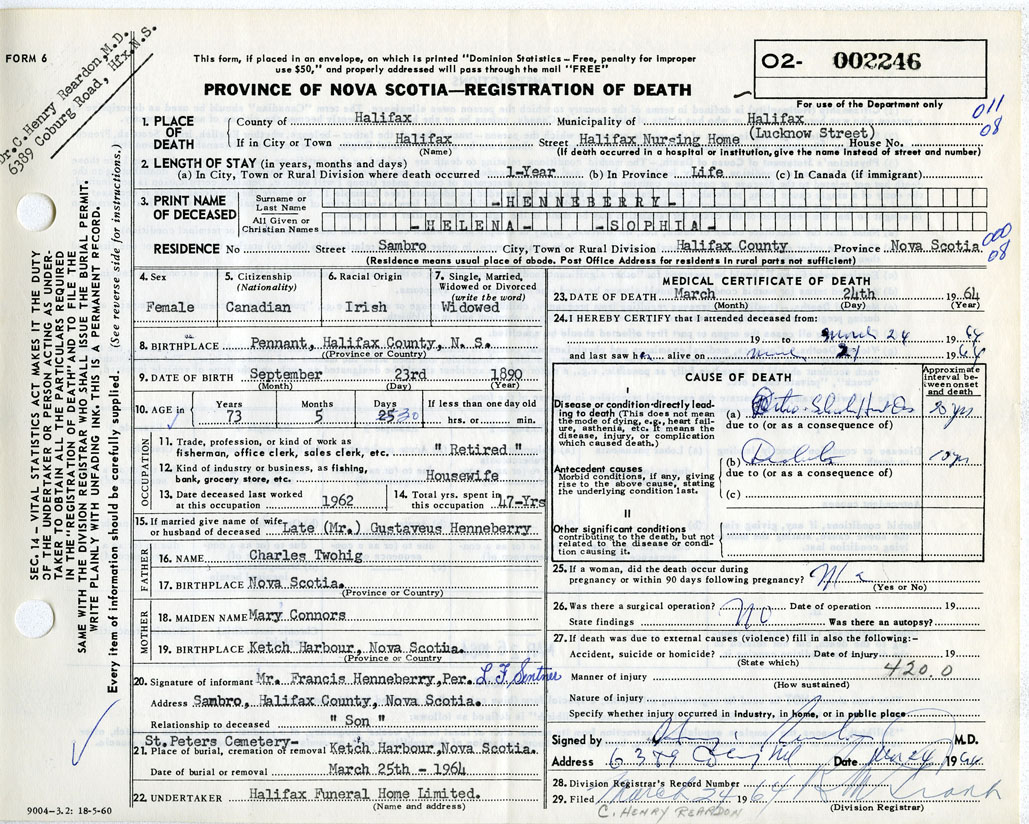 FORM 6
Dr. C. Henry Reardon, M.D.
6389 Coburg Road, Hfx. N.S.
This form, if placed in an envelope, on which is printed "Dominion Statistics – Free, penalty for improper
use $50," and properly addressed will pass through the mail "FREE"
PROVINCE OF NOVA SCOTIA—REGISTRATION OF DEATH
O2- 002246
For use of the Department only
011
08
1. PLACE OF DEATH
County of Halifax Municipality of Halifax
(Lucknow Street)
If in City or Town Halifax Street Halifax Nursing Home House No.
(Name) (If death occurred in a hospital or institution, give the name instead of street and number)
2. LENGTH OF STAY (in years, months and days)
(a) In City, Town or Rural Division where death occurred 1-Year (b) In Province Life (c) In Canada (if immigrant)
3. PRINT NAME OF DECEASED
Surname or Last Name -HENNEBERRY-
All Given or Christian Names -HELENA- -SOPHIA-
RESIDENCE No Street Sambro City, Town or Rural Division Halifax County Province Nova Scotia
(Residence means usual place of abode. Post Office Address for residents in rural parts not sufficient)
000
08
4. Sex
Female
5. Citizenship
(Nationality)
Canadian
6. Racial Origin
Irish
7. Single, Married, Widowed or Divorced
(write the word)
Widowed
8. BIRTHPLACE Pennant, Halifax County, N. S.
(Province or Country)
9. DATE OF BIRTH September 23rd 1890
(Month) (Day) (Year)
10. AGE in Years Months Days If less than one day old
73 5 25 30 hrs. or min.
OCCUPATION
11. Trade, profession, or kind of work as
fisherman, office clerk, sales clerk, etc. " Retired "
12. Kind of industry or business, as fishing,
bank, grocery store, etc. Housewife
13. Date deceased last worked at this occupation 1962
14. Total yrs. spent in this occupation 47-Yrs
15. If married give name of wife or husband of deceased Late (Mr.) Gustaveus Henneberry
FATHER
16. NAME Charles Twohig
17. BIRTHPLACE Nova Scotia.
(Province or Country)
MOTHER
18. MAIDEN NAME Mary Connors
19. BIRTHPLACE Ketch Harbour, Nova Scotia.
(Province or Country)
20. Signature of informant Mr. Francis Henneberry, Per.
Address Sambro, Halifax County, Nova Scotia.
Relationship to deceased " Son "
St. Peters Cemetery-
21. Place of burial, cremation of removal Ketch Harbour, Nova Scotia.
Date of burial or removal March 25th - 1964
22. UNDERTAKER Halifax Funeral Home Limited.
(Name and address)
9004–3.2: 18-5-60
MEDICAL CERTIFICATE OF DEATH
23. DATE OF DEATH March 24th 1964
(Month) (Day) (Year)
24. I HEREBY CERTIFY that I attended deceased from:
19 to March 24 1964
and last saw her alive on March 24 1964
CAUSE OF DEATH
Approximate interval between onset and death
I
Disease or condition directly leading to death (This does not mean the mode of dying, e.g., heart failure, asthenia, etc. It means the disease, injury, or complication which caused death.)
(a)
due to (or as a consequence of)
Antecedent causes
Morbid conditions, if any, giving rise to the above cause, stating the underlying condition last.
(b)
due to (or as a consequence of)
(c)
II
Other significant conditions
contributing to the death, but not related to the disease or condition causing it.
25. If a woman, did the death occur during
pregnancy or within 90 days following pregnancy?
(Yes or No)
26. Was there a surgical operation? No Date of operation 19
State findings Was there an autopsy?
27. If death was due to external causes (violence) fill in also the following:–
Accident, suicide or homicide? Date of injury 19
(State which)
Manner of injury 420.0
(How sustained)
Nature of injury
Specify whether injury occurred in industry, in home, or in public place
Signed by M.D.
Address 6389 Date Mar 24 1964
28. Division Registrar's Record Number
29. Filed March 24 1964
(Division Registrar)
C. HENRY REARDON
SEC. 14 – VITAL STATISTICS ACT MAKES IT THE DUTY
OF THE UNDERTAKER OR PERSON ACTING AS UNDER-
TAKER TO OBTAIN ALL THE PARTICULARS REQUIRED
IN THE "REGISTRATION OF DEATH" AND TO FILE THE
SAME WITH THE DIVISION REGISTRAR WHO SHALL ISSUE THE BURIAL PERMIT.
WRITE PLAINLY WITH UNFADING INK. THIS IS A PERMANENT RECORD.
Every item of information should be carefully supplied. (See reverse side for instructions.)